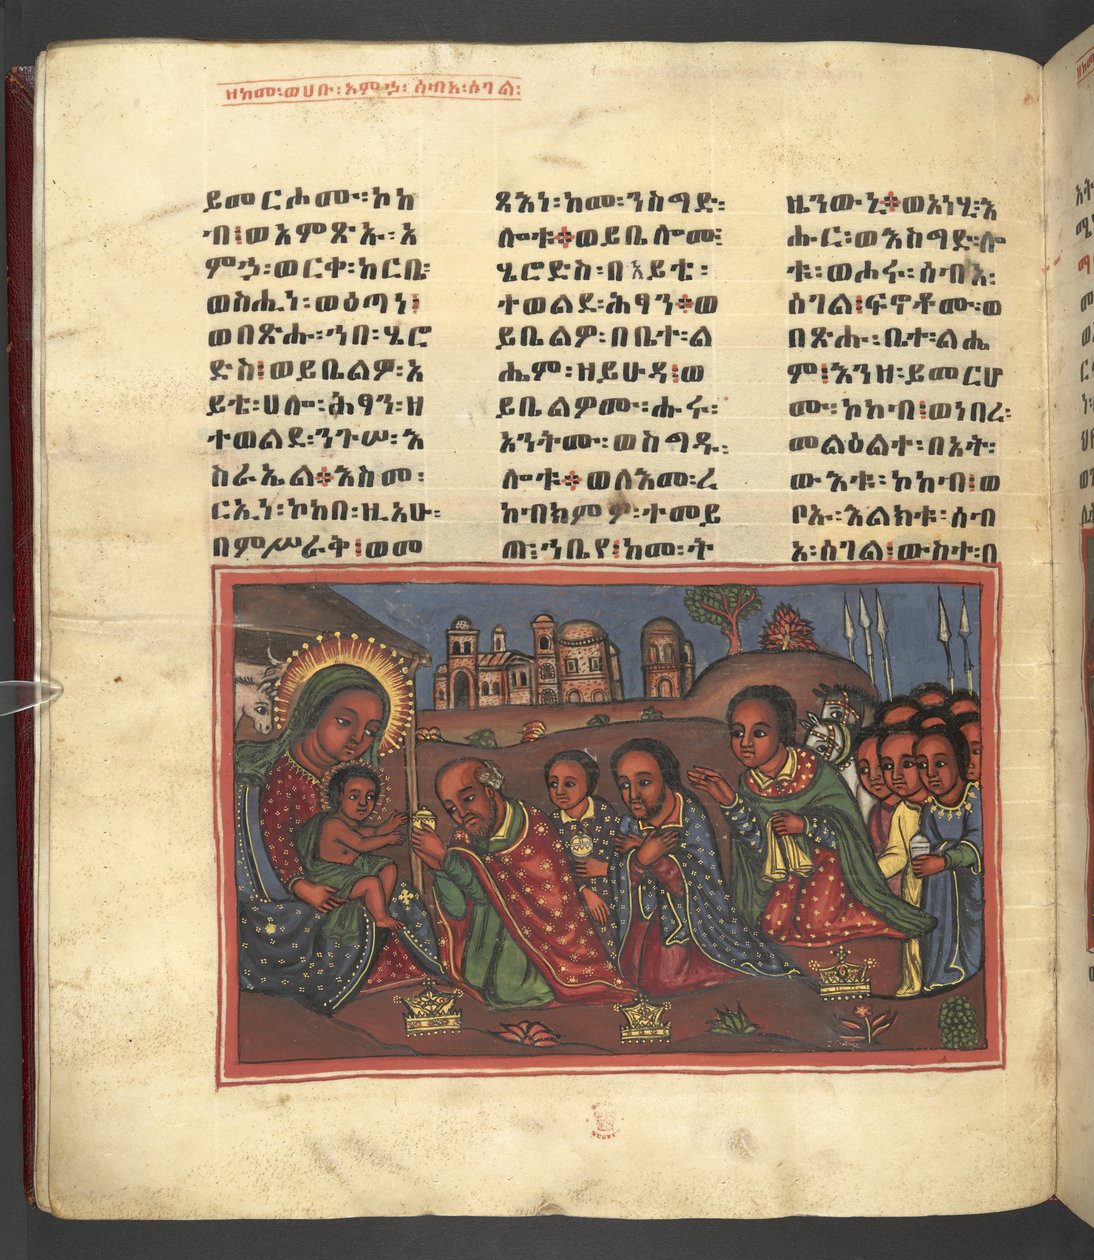 ዘከመ፡ወሀቡ፡አምኃ፡ሰብአ፡ሰገል፡
ይመርሖሙ፡ኮከ
ብ፤ወአምጽኡ፡አ
ምኃ፡ወርቀ፡ከርቤ፡
ወስሒነ፡ወዕጣነ፤
ወበጽሑ፡ኀበ፡ሄሮ
ድስ፤ወይቤልዎ፡አ
ይቴ፡ሀሎ፡ሕፃን፡ዘ
ተወልደ፡ንጉሥ፡እ
ስራኤል፨እስመ፡
ርኢነ፡ኮከበ፡ዚአሁ፡
በምሥራቅ፤ወመ
ጻእነ፡ከመ፡ንስግድ፡
ሎቱ፨ወይቤሎሙ፡
ሄሮድስ፡በአይቴ፡
ተወልደ፡ሕፃን፨ወ
ይቤልዎ፡በቤተ፡ል
ሔም፡ዘይሁዳ፤ወ
ይቤልዎሙ፡ሑሩ፡
አንትሙ፡ወስግዱ፡
ሎቱ፨ወለእመ፡ረ
ከብክምዎ፡ተመይ
ጡ፡ኀቤየ፤ከመ፡ት
ዜንውኒ፨ወአነሂ፡እ
ሑር፡ወእስግድ፡ሎ
ቱ፡ወሖሩ፡ሰብአ፡
ሰገል፤ፍኖቶሙ፡ወ
በጽሑ፡ቤተ፡ልሔ
ም፤እንዘ፡ይመርሆ
ሙ፡ኮከብ፤ወነበረ፡
መልዕልተ፡በአት፡
ውእቱ፡ኮከብ፤ወ
ቦኡ፡እልክቱ፡ሰብ
አ፡ሰገል፤ውስተ፡በ